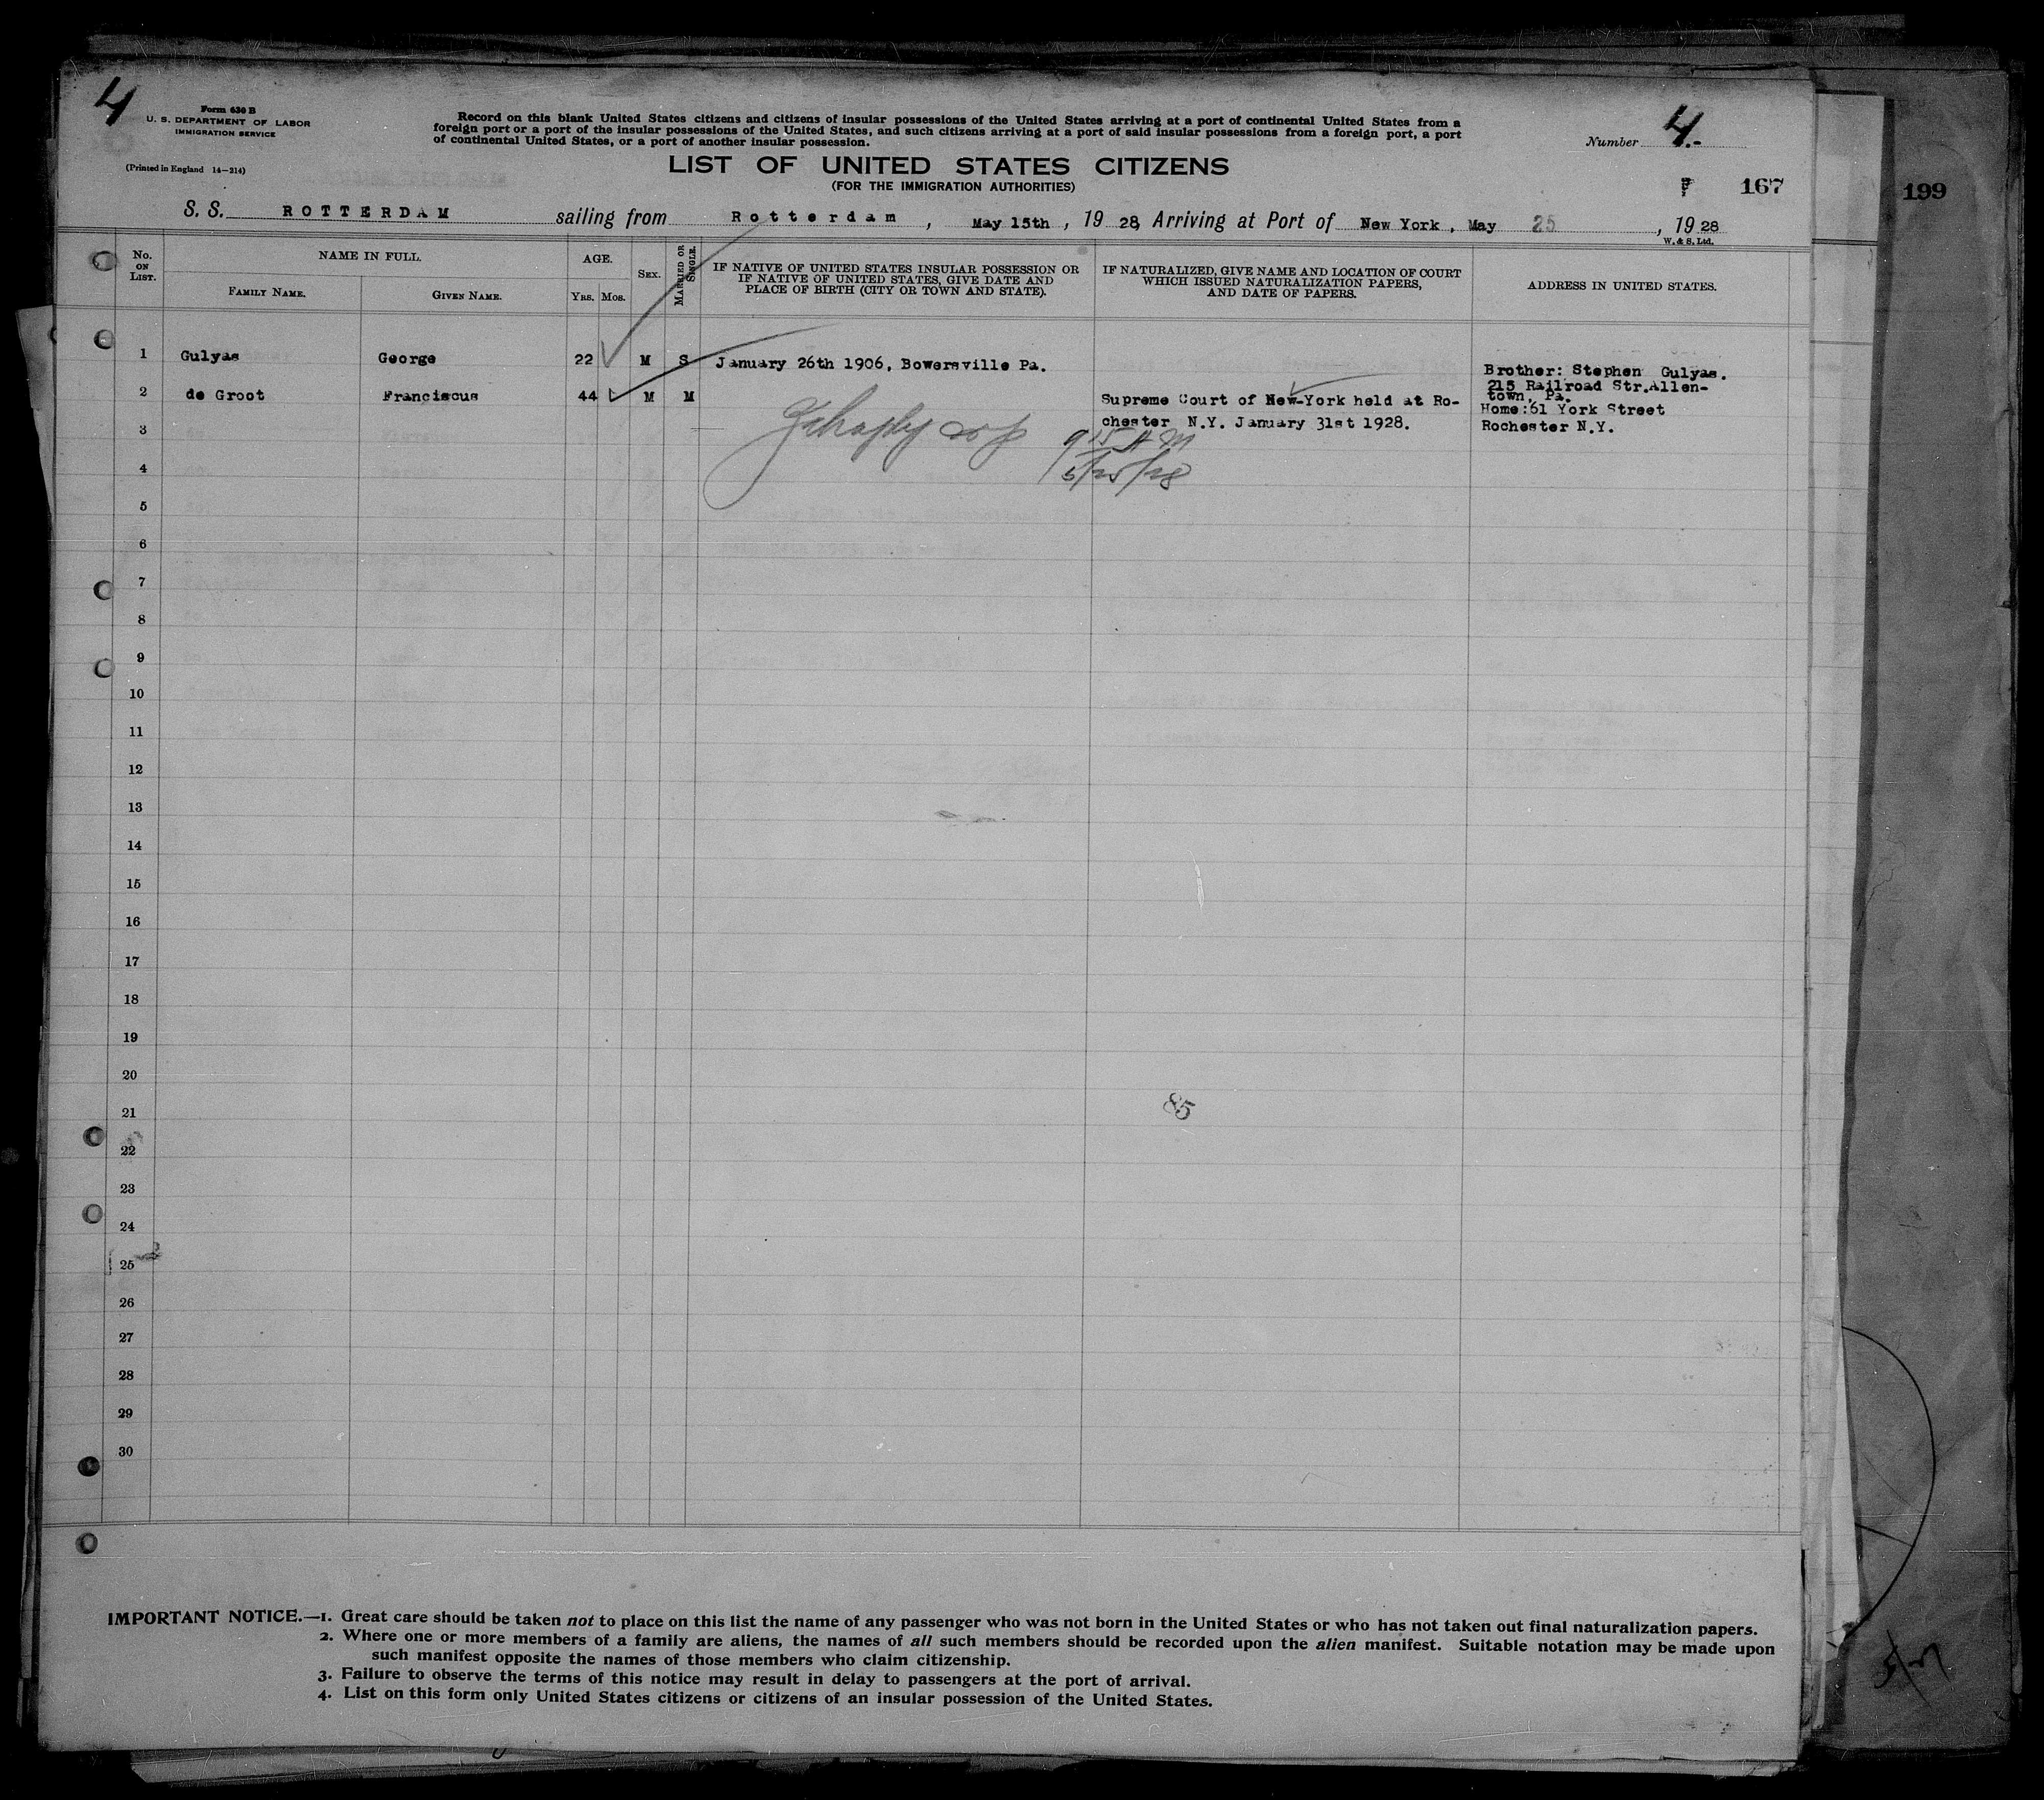 4
Form 630 B
U. S. DEPARTMENT OF LABOR
IMMIGRATION SERVICE
(Printed in England 14—214)
Record on this blank United States citizens and citizens of insular possessions of the United States arriving at a port of continental United States from a
foreign port or a port of the insular possessions of the United States, and such citizens arriving at a port of said insular possessions from a foreign port, a port
of continental United States, or a port of another insular possession.
Number 4.-
LIST OF UNITED STATES CITIZENS
(FOR THE IMMIGRATION AUTHORITIES)
167
199
S. S. ROTTERDAM sailing from Rotterdam, May 15th, 19 28, Arriving at Port of New York, May 25, 19 28
W. & S. Ltd.
No. ON LIST.
NAME IN FULL.
FAMILY NAME.
GIVEN NAME.
AGE.
YRS.
MOS.
SEX.
MARRIED OR SINGLE.
IF NATIVE OF UNITED STATES INSULAR POSSESSION OR
IF NATIVE OF UNITED STATES, GIVE DATE AND
PLACE OF BIRTH (CITY OR TOWN AND STATE).
IF NATURALIZED, GIVE NAME AND LOCATION OF COURT
WHICH ISSUED NATURALIZATION PAPERS,
AND DATE OF PAPERS.
ADDRESS IN UNITED STATES.
1 Gulyas George 22 M S January 26th 1906, Bowersville Pa.
Brother: Stephen Gulyas.
215 Railroad Str.Allen-
town, Pa.
2 de Groot Franciscus 44 M M Supreme Court of New-York held at Ro-
chester N.Y. January 31st 1928.
Home:61 York Street
Rochester N.Y.
9 15 A M
5/25/28
3
4
5
6
7
8
9
10
11
12
13
14
15
16
17
18
19
20
21
85
22
23
24
25
26
27
28
29
30
IMPORTANT NOTICE.—1. Great care should be taken not to place on this list the name of any passenger who was not born in the United States or who has not taken out final naturalization papers.
2. Where one or more members of a family are aliens, the names of all such members should be recorded upon the alien manifest. Suitable notation may be made upon
such manifest opposite the names of those members who claim citizenship.
3. Failure to observe the terms of this notice may result in delay to passengers at the port of arrival.
4. List on this form only United States citizens or citizens of an insular possession of the United States.